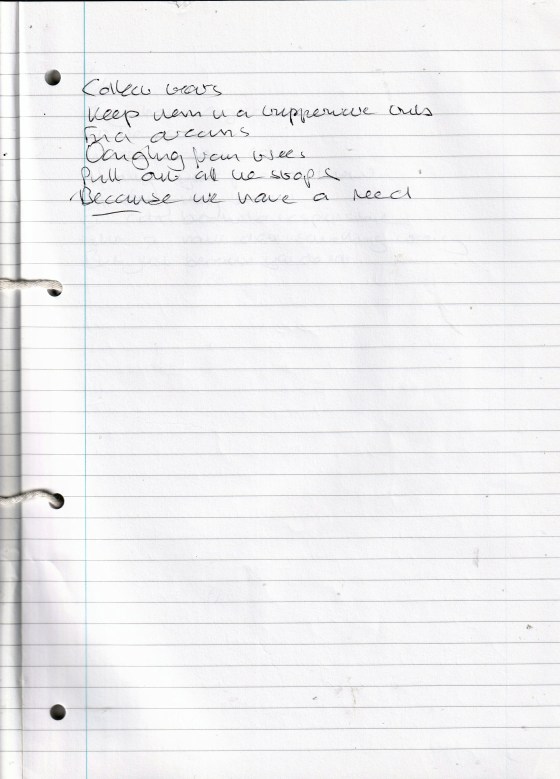 Collect
Keep them in a tupperware
Find dreams
Hanging from trees
Pull out all the stops
Because we have a need